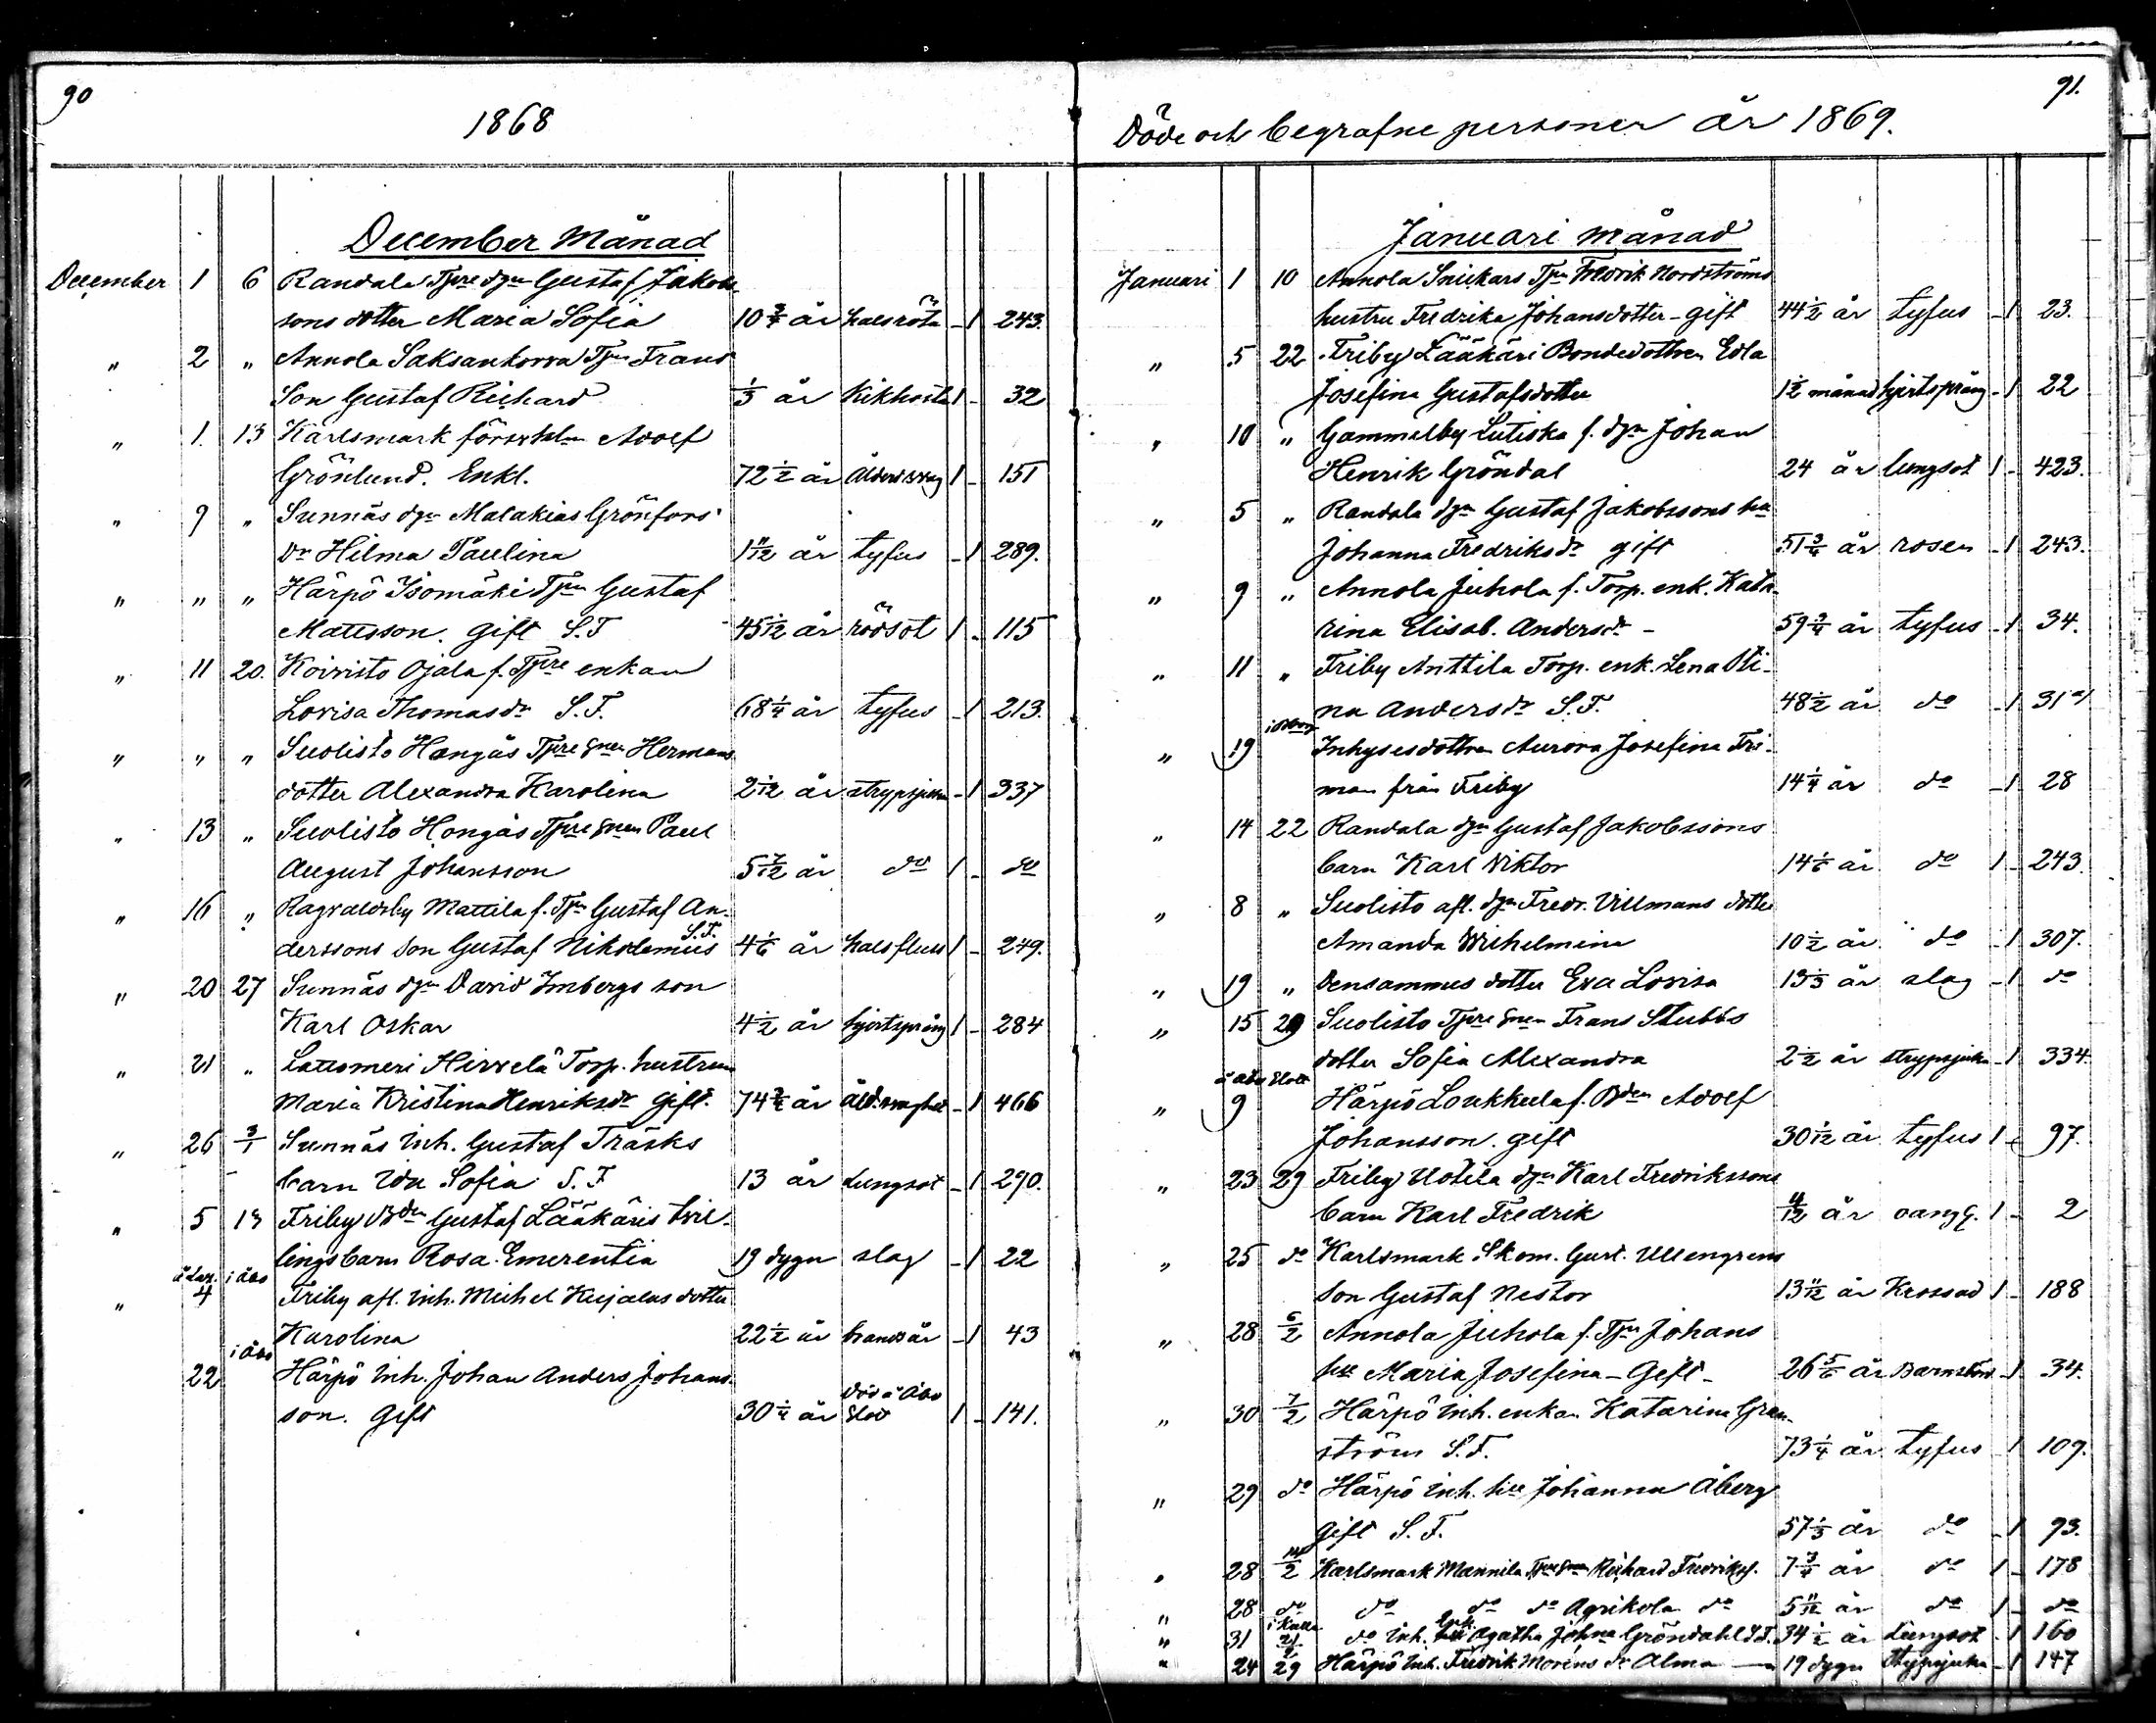 90
1868
December Månad
December 1 6 Randala Tjre dgn Gustaf Jakobs-
sons dotter Maria Sofia 10 3/4 år halsröta - 1 243.
" 2 " Annola Saksankorva Tjn Frans
Son Gustaf Richard 1/3 år Kikhosta 1 - 32
" 1. 13 Karlsmark Adolf
Grönlund. Enkl. 72 1/2 år 1 - 151
" 9 " Sunnäs dgn Malakias Grönfors
dr Hilma Paulina 1 11/12 år tyfus - 1 289.
" " " Härpö Isomäki Tjn Gustaf
Mattsson. gift S.F 45 1/12 år rödsot 1 - 115
" 11 20. Koivisto Ojala f. Tjre enkan
Lovisa Thomasdr S.F. 68 1/4 år tyfus - 1 213.
" " " Suolisto Hongäs Tjre Snen Hermans
dotter Alexandra Karolina 2 1/12 år strypsjukan - 1 337
" 13 " Suolisto Hongäs Tjre Snen Paul
August Johansson 5 7/12 år do 1 - do
" 16 " Ragvaldsby Mattila f. Tjn Gustaf An-
derssons Son Gustaf Nikodemus S.F. 4 1/6 år halsfluss 1 - 249.
" 20 27 Sunnäs dgn David Imbergs son
Karl Oskar 4 1/2 år hjertsprång 1 - 284
" 21 " Lattomeri Hirvelä Torp. hustrun
Maria Kristina Henriksdr gift. 74 3/4 år - 1 466
" 26 3/1 Sunnäs inh. Gustaf Träsks
barn Ida Sofia S.F 13 år Lungsot - 1 290.
" 5 13 Friby Bden Gustaf Lääkäris tvil-
lingsbarn Rosa Emerentia 19 dygn slag - 1 22
" 4 i Åbo Friby afl. inh. Michel Kujalas dotter
Karolina 22 1/2 år - 1 43
22 i Åbo Härpö inh. Johan Anders Johans-
son. Gift 30 1/4 år Död i Åbo Slott 1 - 141.
91.
Döde och begrafne personer år 1869.
Januari månad
Januari 1 10 Annola Snickars Tjn Fredrik Nordströms
hustru Fredrika Johansdotter - gift 44 1/2 år tyfus - 1 23.
" 5 22 Friby Lääkäri Bondedottren Edla
Josefina Gustafsdotter 1 1/2 månad hjertsprång - 1 22
" 10 " Gammelby Lutiska f. dgn Johan
Henrik Gröndal 24 år lungsot 1 - 423.
" 5 " Randala dgn Gustaf Jakobssons ha
Johanna Fredriksdr gift 51 3/4 år rosen - 1 243.
" 9 " Annola Juhola f. Torp. enk. Kata-
rina Elisab. Andersdr - 59 3/4 år tyfus - 1 34.
" 11 " Friby Anttila Torp. enk. Lena Sti-
na Andersdr S.F. 48 1/2 år do - 1 31
" 19 Inhysesdottren Aurora Josefina Fri-
man från Friby 14 1/4 år do - 1 28
" 14 22 Randala dgn Gustaf Jakobssons
barn Karl Viktor 14 1/6 år do 1 - 243.
" 8 " Suolisto afl. dgn Fredr. Villmans dotter
Amanda Wilhelmina 10 1/2 år do - 1 307.
" 19 " Densammes dotter Eva Lovisa 13 1/3 år slag - 1 do
" 15 29 Suolisto Tjre Snen Frans Stubbs
dotter Sofia Alexandra 2 1/2 år strypsjuka - 1 334.
" 9 å Åbo Slott Härpö Loukkula f. Bden Adolf
Johansson. gift 30 1/12 år tyfus 1 - 97.
" 23 29 Friby Uotila dgn Karl Fredrikssons
barn Karl Fredrik 4/12 år oang. 1 - 2
" 25 do Karlsmark Skom. Gust. Ullengrens
Son Gustaf Nestor 13 11/12 år Krossad 1 - 188
" 28 6/2 Annola Juhola f. Tjn Johans
hu Maria Josefina - Gift - 26 5/6 år Barnsbörd - 1 34.
" 30 7/2 Härpö inh. enkan Katarina Gran-
ström S.F. 73 1/4 år tyfus - 1 109.
" 29 do Härpö inh. hu Johanna Åberg
gift S.F. 57 1/3 år do - 1 93.
" 28 14/2 Karlsmark Mannila Richard Fredriks. 7 3/4 år do 1 - 178
" 28 do do do do Agrikola do 5 11/12 år do 1 - do
" 31 21/2 do inh. Enk. Agatha Johna Gröndahl S.F. 34 1/2 år Lungsot - 1 160
" 24 29 Härpö inh. Fredrik Moréns dr Alma — 19 dygn Strypsjuka - 1 147